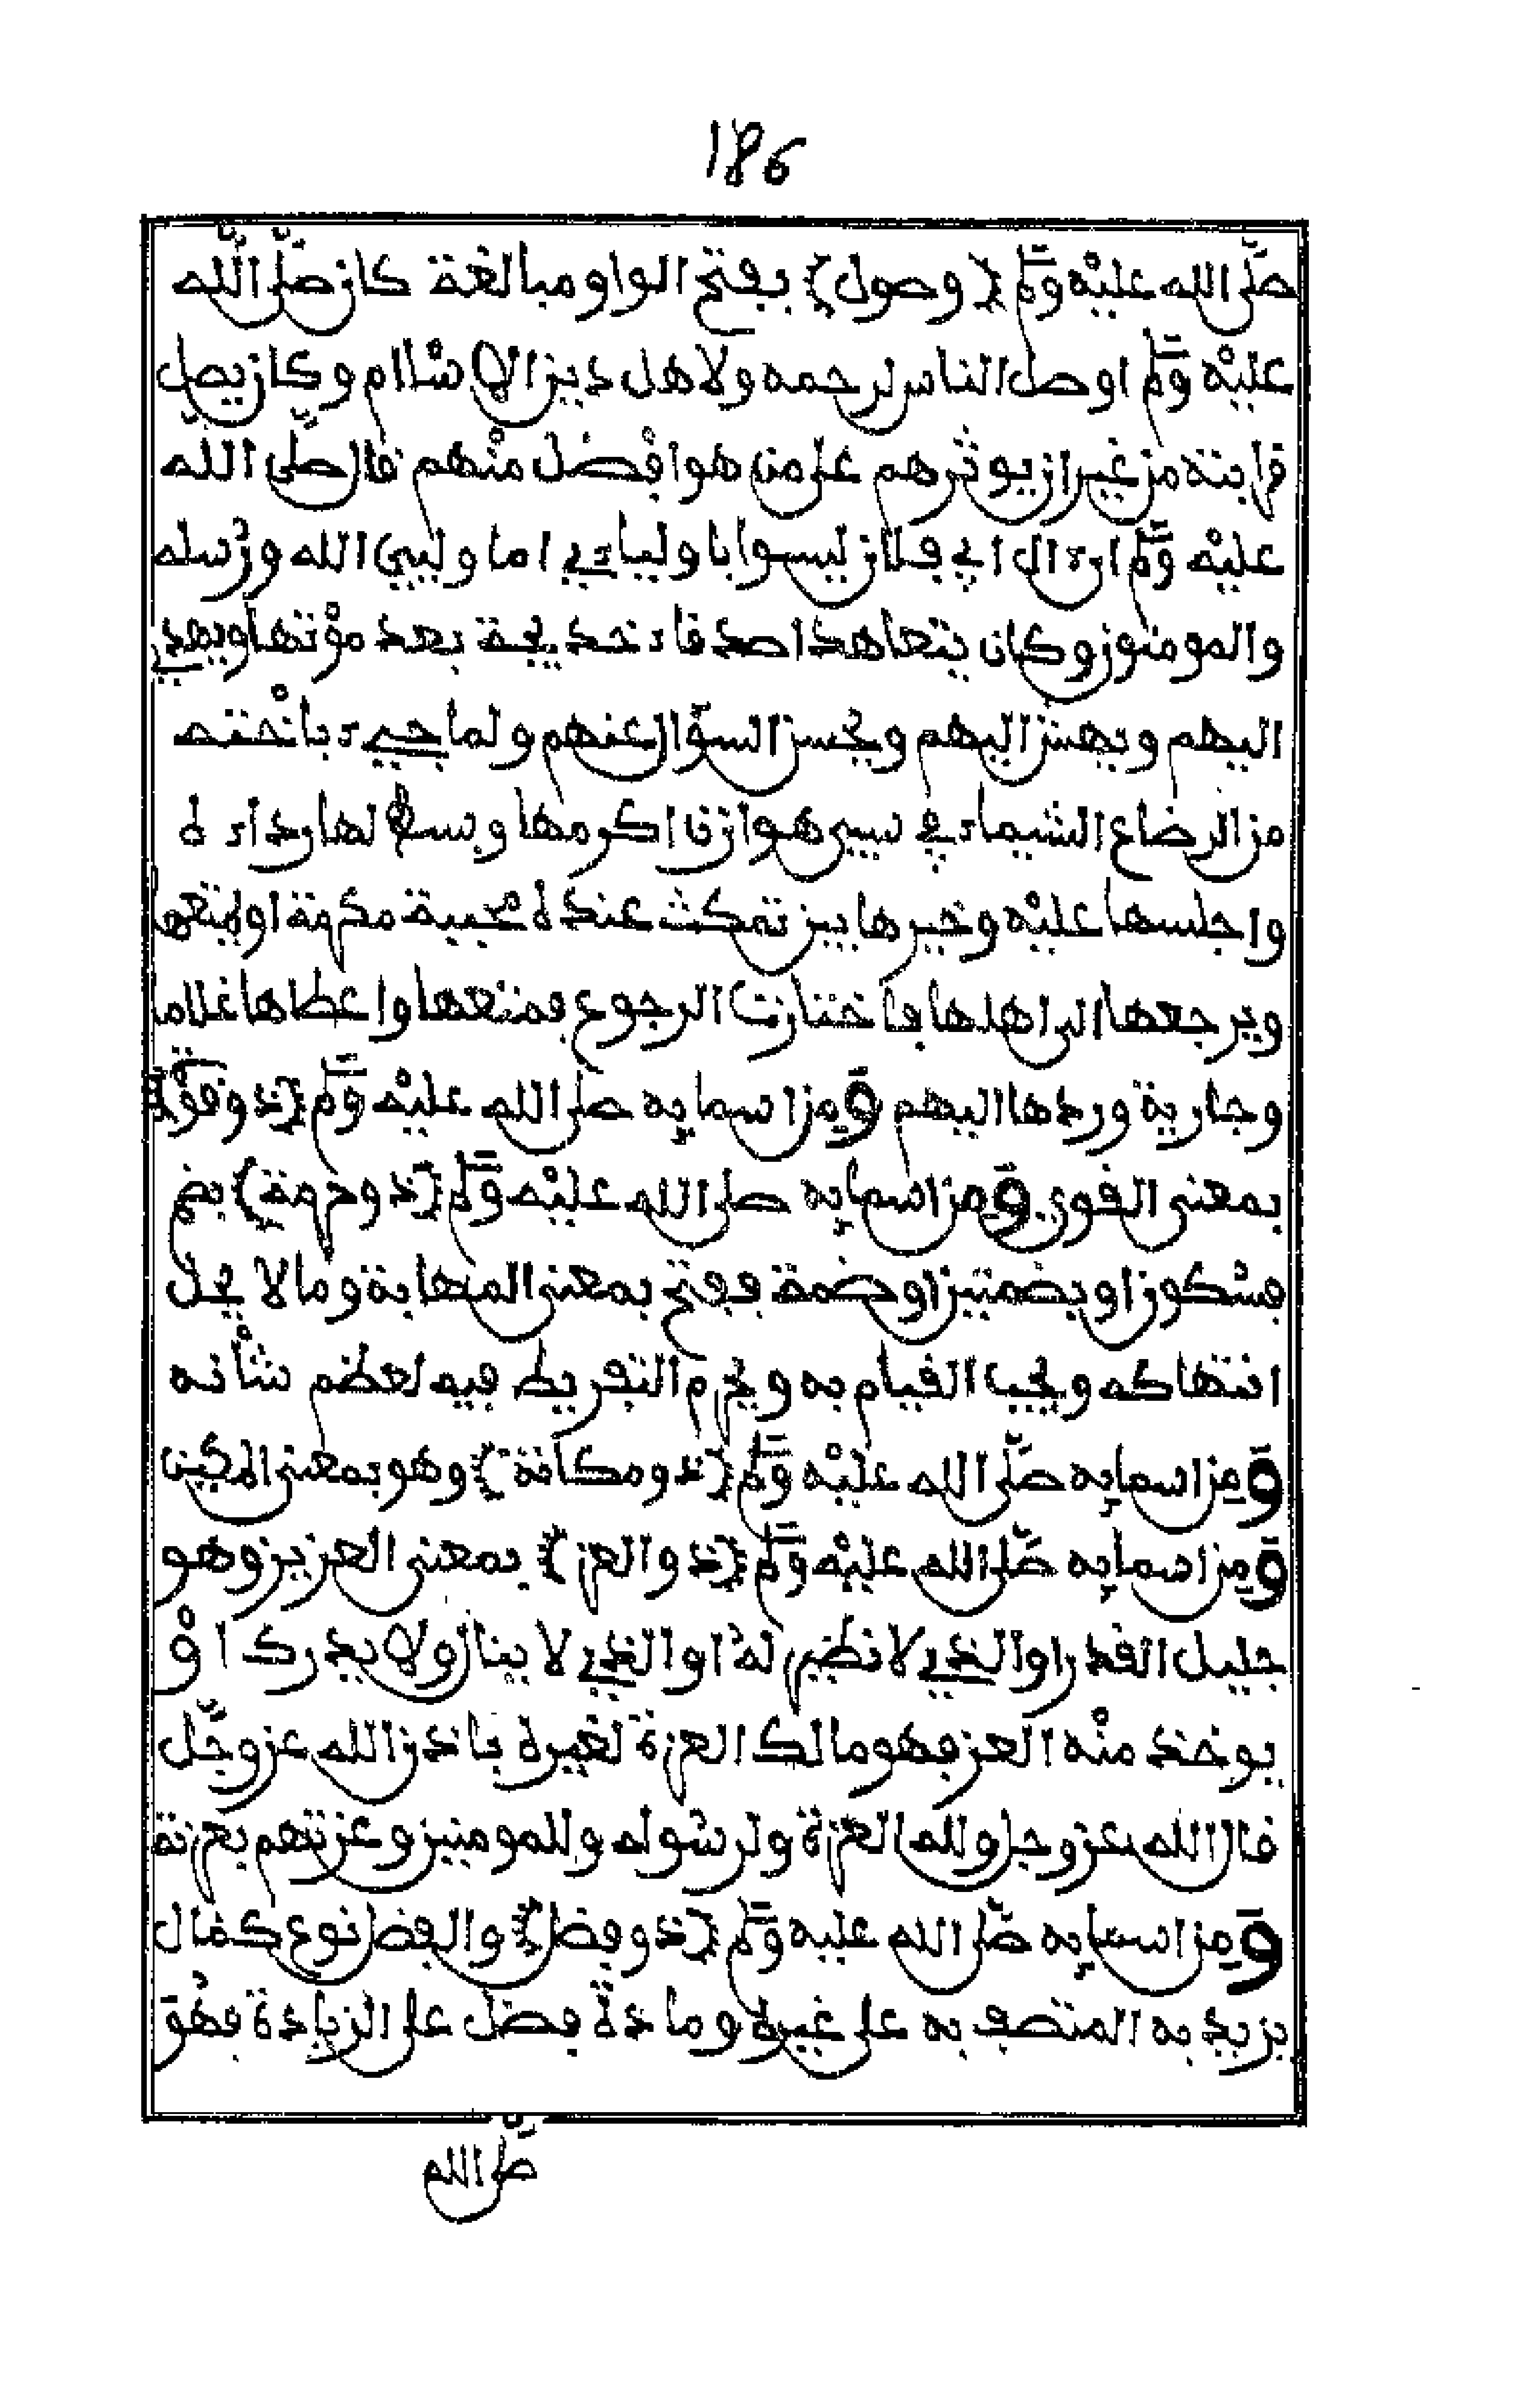 186
صلى الله عليه وسلم (وصول) بفتح الواو مبالغة كان صلى الله
عليه وسلم اوصل الناس لرحمه ولاهل دين الاسلام وكان يصل
قرابته من غير ان يوثرهم على من هو افضل منهم قال صلى الله
عليه وسلم ان ءال ابي فلان ليسوا باولياءي انما وليي الله ورسله
والمومنون وكان يتعاهد اصدقاء خديجة بعد موتها ويهدي
اليهم ويهش اليهم ويحسن السؤال عنهم ولما جيء باخته
من الرضاع الشيماء في سبي هوازن اكرمها وبسط لها رداءه
واجلسها عليه وخيرها بين تمكث عنده محببة مكرمة او يمتعها
ويرجعها الى اهلها فاختارت الرجوع فمتعها واعطاها غلاما
وجارية وردها اليهم ومن اسمايه صلى الله عليه وسلم (ذو قوة)
بمعنى القوي ومن اسمايه صلى الله عليه وسلم (ذو حرمة) بضم
فسكون او بضمتين او ضمة ففتح بمعنى المهابة وما لا يحل
انتهاكه ويجب القيام به ويحرم التفريط فيه لعظم شأنه
ومن اسمايه صلى الله عليه وسلم (ذو مكانة) وهو بمعنى المكين
ومن اسمايه صلى الله عليه وسلم (ذو العز) بمعنى العزيز وهو
جليل القدر او الذي لا نظير له او الذي لا ينال ولا يدرك او
يوخذ منه العز فهو مالك العزة لغيره باذن الله عز وجل
قال الله عز وجل ولله العزة ولرسوله وللمومنين وعزتهم بعزته
ومن اسمايه صلى الله عليه وسلم (ذو فضل) والفضل نوع كمال
يزيد به المتصف به على غيره ومادة فضل على الزيادة فهو
صلى الله